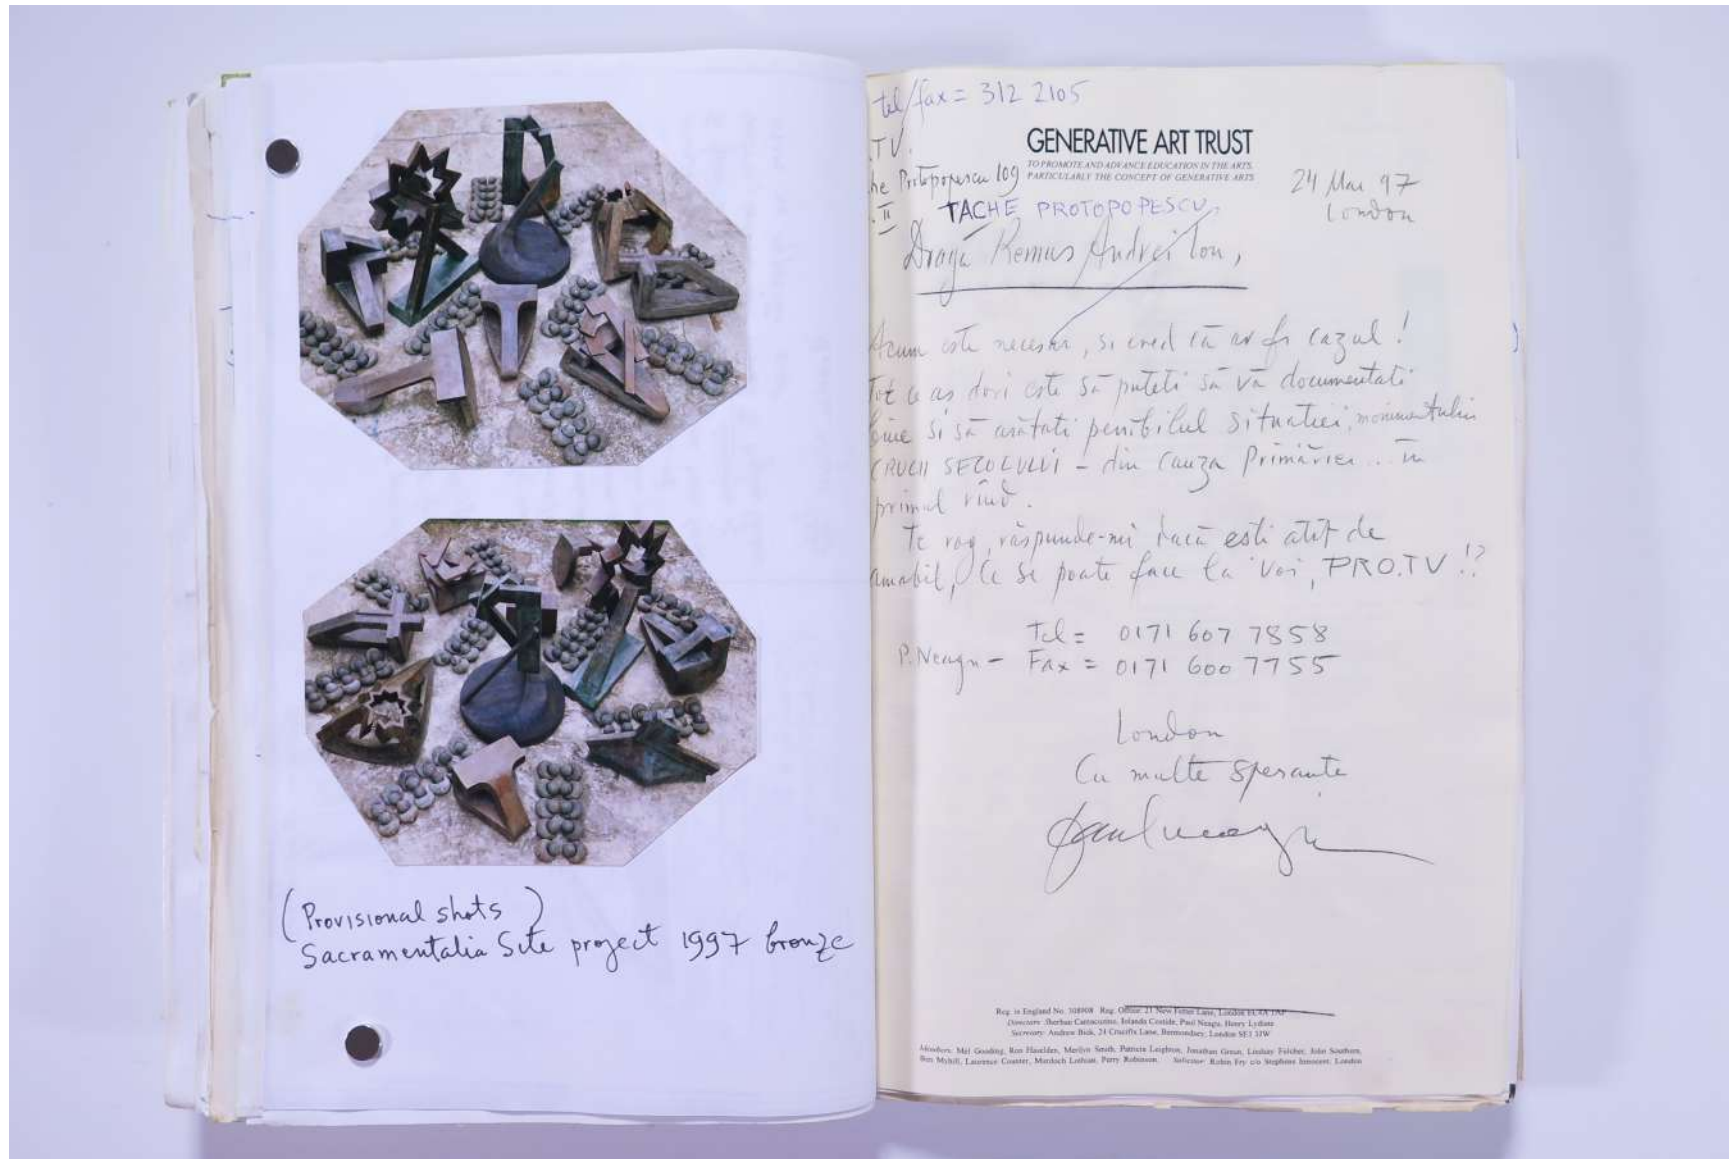 (Provisional shots)
Sacramentalia Site project 1997 bronze
tel/fax = 312 2105
.TV.
he Protopopescu 109
. II
GENERATIVE ART TRUST
TO PROMOTE AND ADVANCE EDUCATION IN THE ARTS,
PARTICULARLY THE CONCEPT OF GENERATIVE ARTS
24 Mar 97
London
TACHE PROTOPOPESCU
Dragă Remus Andrei Ion,
Acum este necesar, si cred că ar fi cazul!
Tot ce as dori este să puteti să vă documentati
bine si să arătati penibilul situatiei, monumentului
CRUCII SECOLULUI – din cauza Primăriei... în
primul rînd.
Te rog, răspunde-mi dacă esti atît de
amabil, Ce se poate face la voi, PRO.TV!?
Tel = 0171 607 7858
P. Neagu – Fax = 0171 600 7755
London
Cu multe speranțe
Paul Neagu
Reg. in England No. Reg. Office: 21 New Fetter Lane, London EC4A 1AP
Directors: Sherban Cantacuzino, Iolanda Costide, Paul Neagu, Henry Lydiate
Secretary: Andrew Bick, 24 Crucifix Lane, Bermondsey, London SE1 3JW
Members: Mel Gooding, Ron Haselden, Marilyn Smith, Patricia Leighton, Jonathan Green, Lindsay Fulcher, John Southern,
Ben Myhill, Laurence Coaster, Murdoch Lothian, Perry Robinson. Solicitor: Robin Fry c/o Stephens Innocent, London